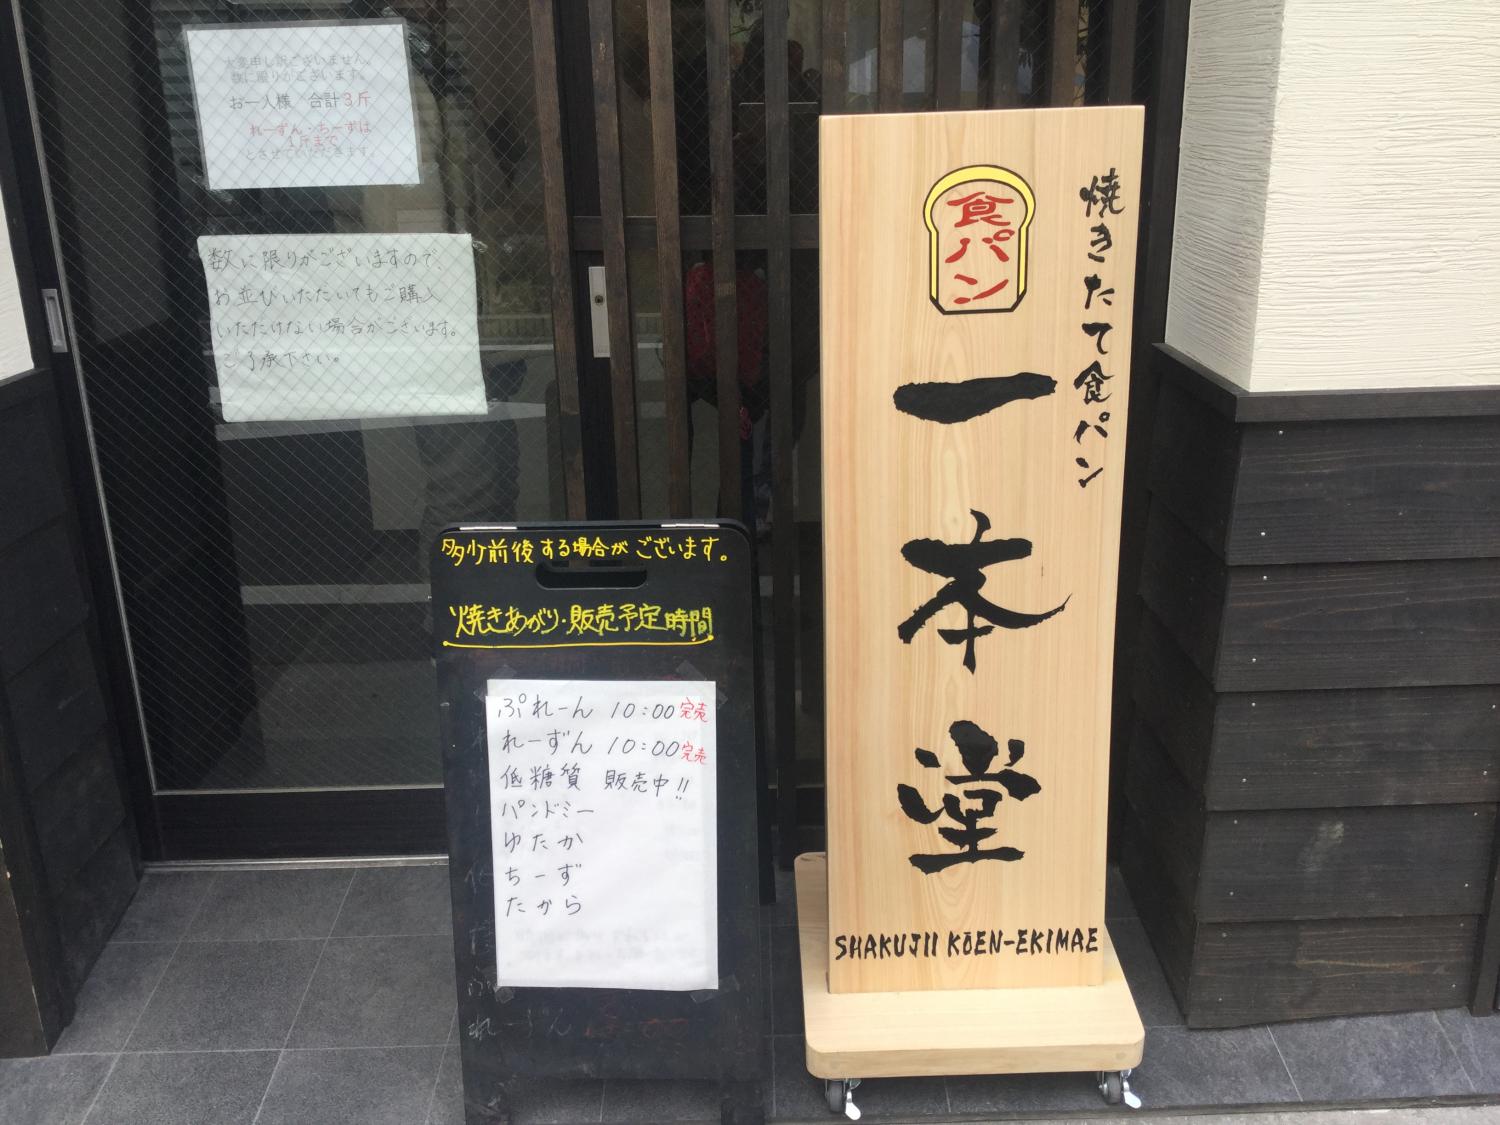 大変申し訳ございません。
数に限りがございます。
お一人様 合計3斤
れーずん・ちーずは
1斤まで
とさせていただきます。
数に限りがございますので、
お並びいただいてもご購入
いただけない場合がございます。
ご了承下さい。
多少前後する場合がございます。
焼きあがり・販売予定時間
ぷれーん 10:00 完売
れーずん 10:00 完売
低糖質 販売中!!
パンドミー
ゆたか
ちーず
たから
食パン
焼きたて食パン
一本堂
SHAKUJII KŌEN-EKIMAE